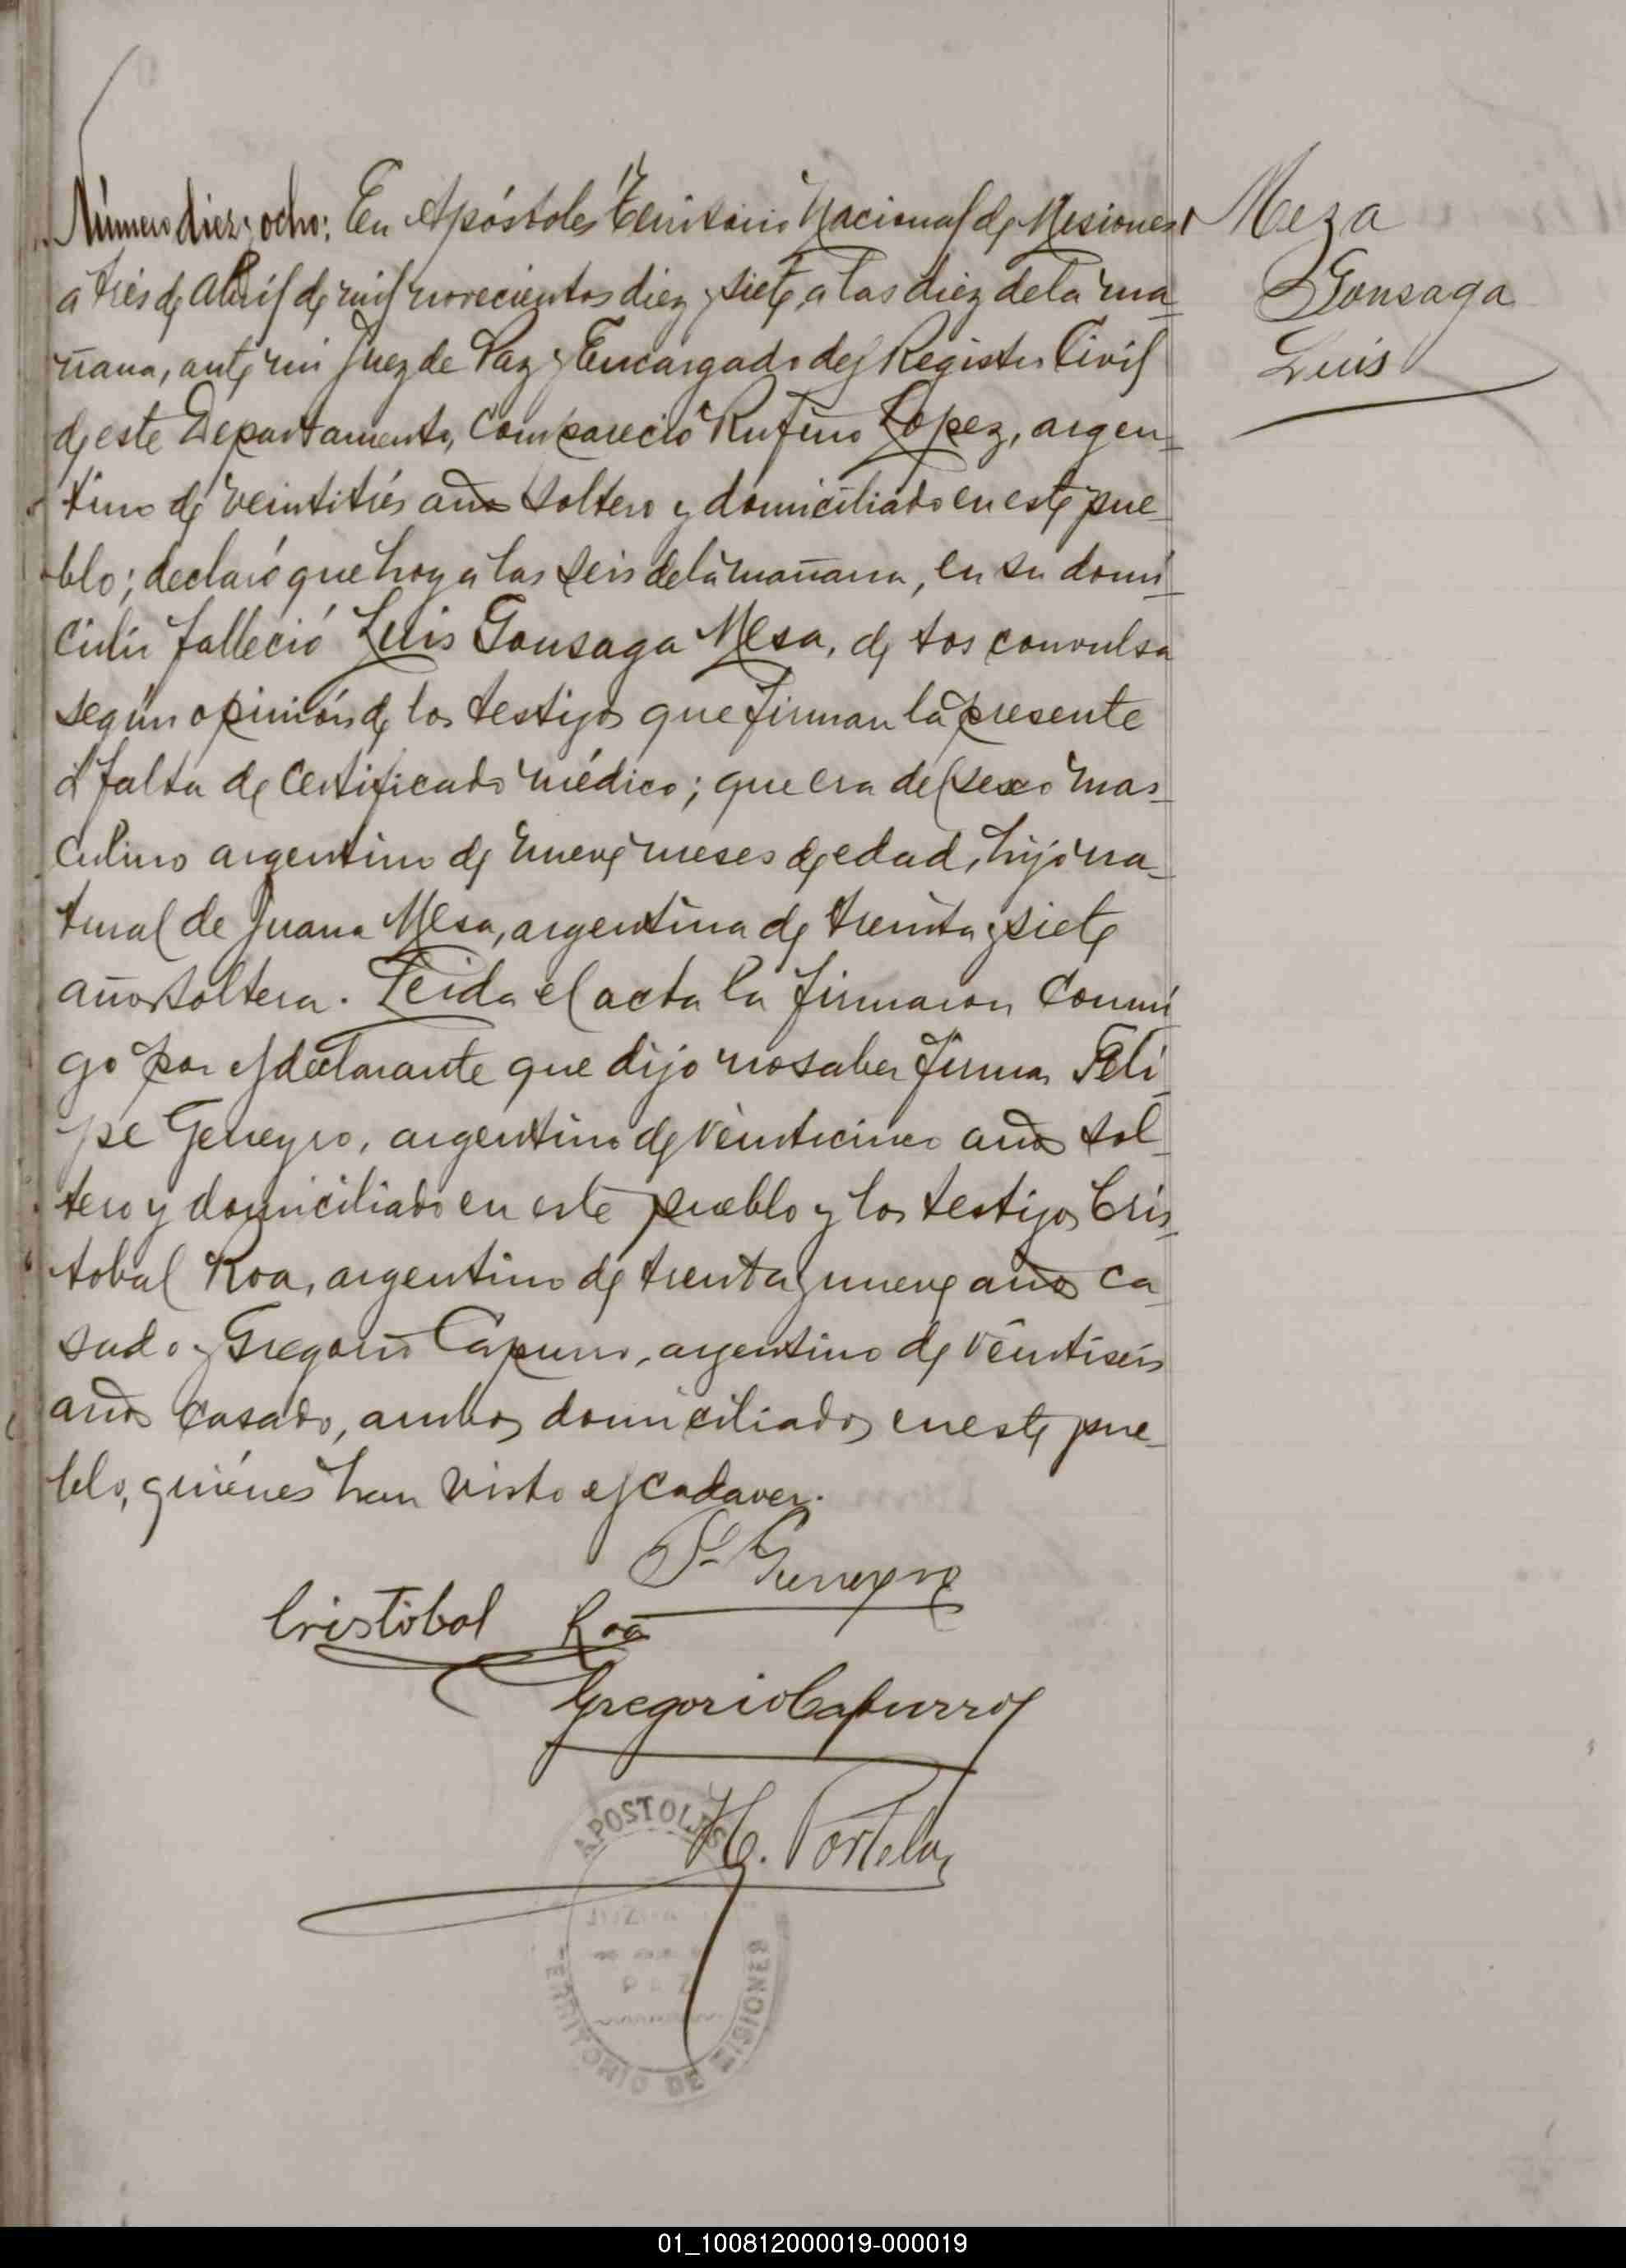 Número diez y ocho: En Apóstoles Territorio Nacional de Misiones
á tres de Abril de mil novecientos diez y siete, a las diez de la ma-
ñana, ante mi Juez de Paz y Encargado del Registro Civil
de este Departamento, compareció Rufino Lopez, argen-
tino de veintitrés años soltero y domiciliado en este pue-
blo; declaró que hoy a las seis de la mañana, en su domi-
cilio falleció Luis Gonsaga Mesa, de tos convulsa
según opinión de los testigos que firman la presente
á falta de certificado médico; que era del sexo mas-
culino argentino de nueve meses de edad, hijo na-
tural de Juana Mesa, argentina de treinta y siete
años soltera. Leida el acta la firmaron conmi-
go por el declarante que dijo no saber firmar Feli-
pe Geneyro, argentino de veinticinco años sol-
tero y domiciliado en este pueblo y los testigos Cris-
tobal Roa, argentino de treinta y nueve años ca-
sado y Gregorio Capurro, argentino de veintiseis
años casado, ambos domiciliados en este pue-
blo, quiénes han visto el cadaver.
Geneyro
Cristobal Roa
Gregorio Capurro
H. Portela
APOSTOLES
TERRITORIO DE MISIONES
Meza
Gonsaga
Luis
01_100812000019-000019